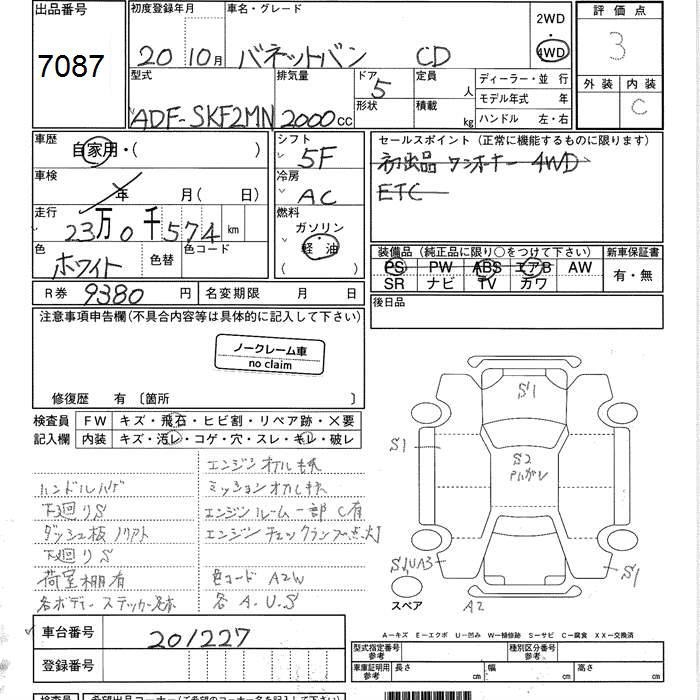 出品番号 初度登録年月 車名・グレード 2WD 評価点
7087 20 年 10月 バネットバン CD 4WD 3
型式 排気量 ドア 定員 ディーラー・並行 外装 内装
5 人 モデル年式 年 C
ADF-SKF2MN 2000cc 形状 積載 kg ハンドル 左・右
車歴 シフト セールスポイント(正常に機能するものに限ります)
自家用・( ) 5F 初出品 ワンオーナー 4WD
車検 冷房 ETC
年 月(日) AC
走行 燃料
23万0千574 km ガソリン
色 色替 色コード 軽油 装備品(純正品に限り○をつけて下さい) 新車保証書
ホワイト ( ) PS PW ABS エアB AW 有・無
SR ナビ TV カワ
R券 9380 円 名変期限 月 日 後日品
注意事項申告欄(不具合内容等は具体的に記入して下さい)
ノークレーム車
no claim
修復歴 有 〔箇所 〕
検査員 FW キズ・飛石・ヒビ割・リペア跡・×要
記入欄 内装 キズ・汚レ・コゲ・穴・スレ・キレ・破レ
S1
S1
S2
エンジンオイルモレ
ハンドルハゲ ミッションオイルモレ
下廻りS エンジンルーム一部C有
ダッシュ板 エンジンチェックランプ点灯
下廻りS
荷室棚有 色コード A2W
各ボディーステッカー 各A.U.S
S1UA3 S1
スペア A2
車台番号 201227
A-キズ E-エクボ U-凹み W-補修跡 S-サビ C-腐食 XX-交換済
型式指定番号 参考 種別区分番号 参考
登録番号 車庫証明用 参考 長さ cm 幅 cm 高さ cm
検査員 希望出品コーナー(ご希望のコーナー名を記入下さい)